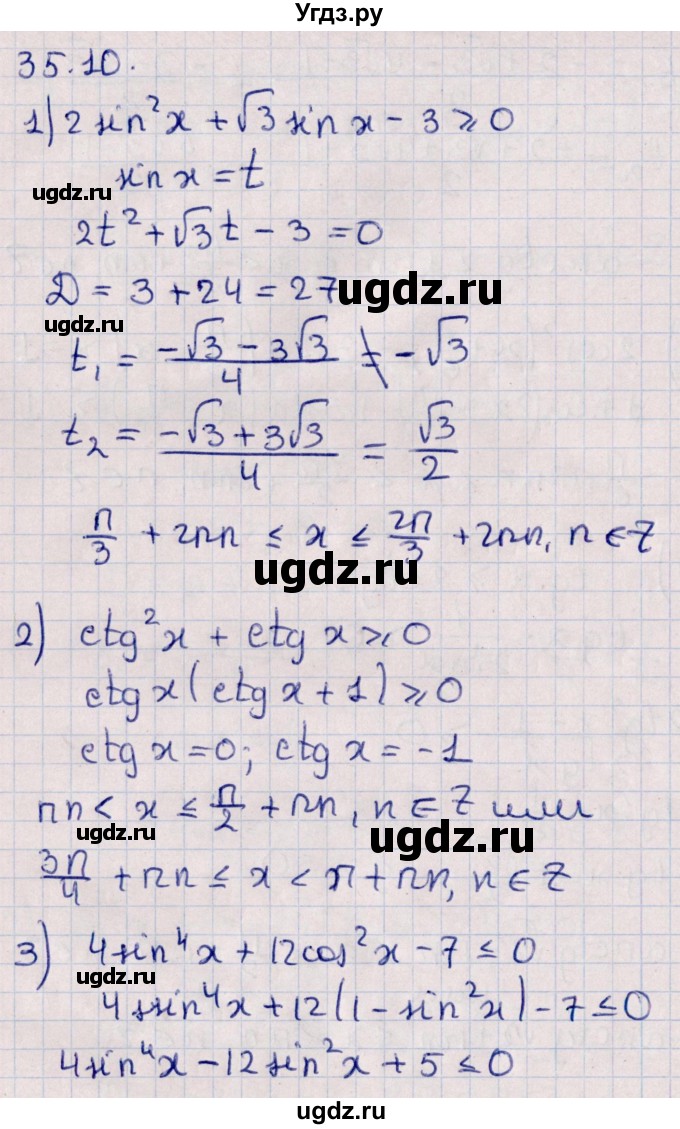 Угдз.ру
35.10.
1) 2 sin²x + √3 sin x - 3 ⩾ 0
sin x = t
ugdz.ru
2t² + √3t - 3 = 0
D = 3 + 24 = 27
ugdz.ru
ugdz.ru
t₁ = (-√3 - 3√3)/4 ≠ -√3
t₂ = (-√3 + 3√3)/4 = √3/2
π/3 + 2πn ≤ x ≤ 2π/3 + 2πn, n ∈ Z
ugdz.ru
2) ctg²x + ctg x ⩾ 0
ctg x (ctg x + 1) ⩾ 0
ctg x = 0; ctg x = -1
πn < x ≤ π/2 + πn, n ∈ Z или
ugdz.ru
ugdz.ru
3π/4 + πn ≤ x < π + πn, n ∈ Z
3) 4 sin⁴x + 12cos²x - 7 ≤ 0
ugdz.ru
4 sin⁴x + 12(1 - sin²x) - 7 ≤ 0
ugdz.ru
4sin⁴x - 12 sin²x + 5 ≤ 0
ugdz.ru